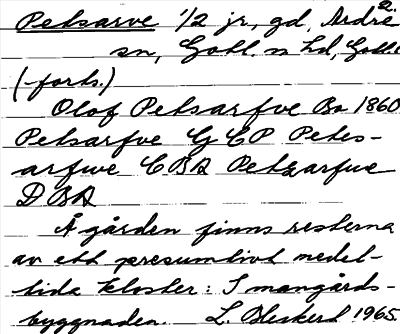 2.
Petsarve 1/2 jr, gd, Ardre
sn, Gotl. n hd, Gotl.
(forts.)
Olof Petsarfve Bo 1860
Petsarfve GEP Petes-
arfwe CBA Petzarfue
DBA
Å gården finns resterna
av ett presumtivt medel-
tida kloster: I mangårds-
byggnaden. L. Bleskerd 1965.